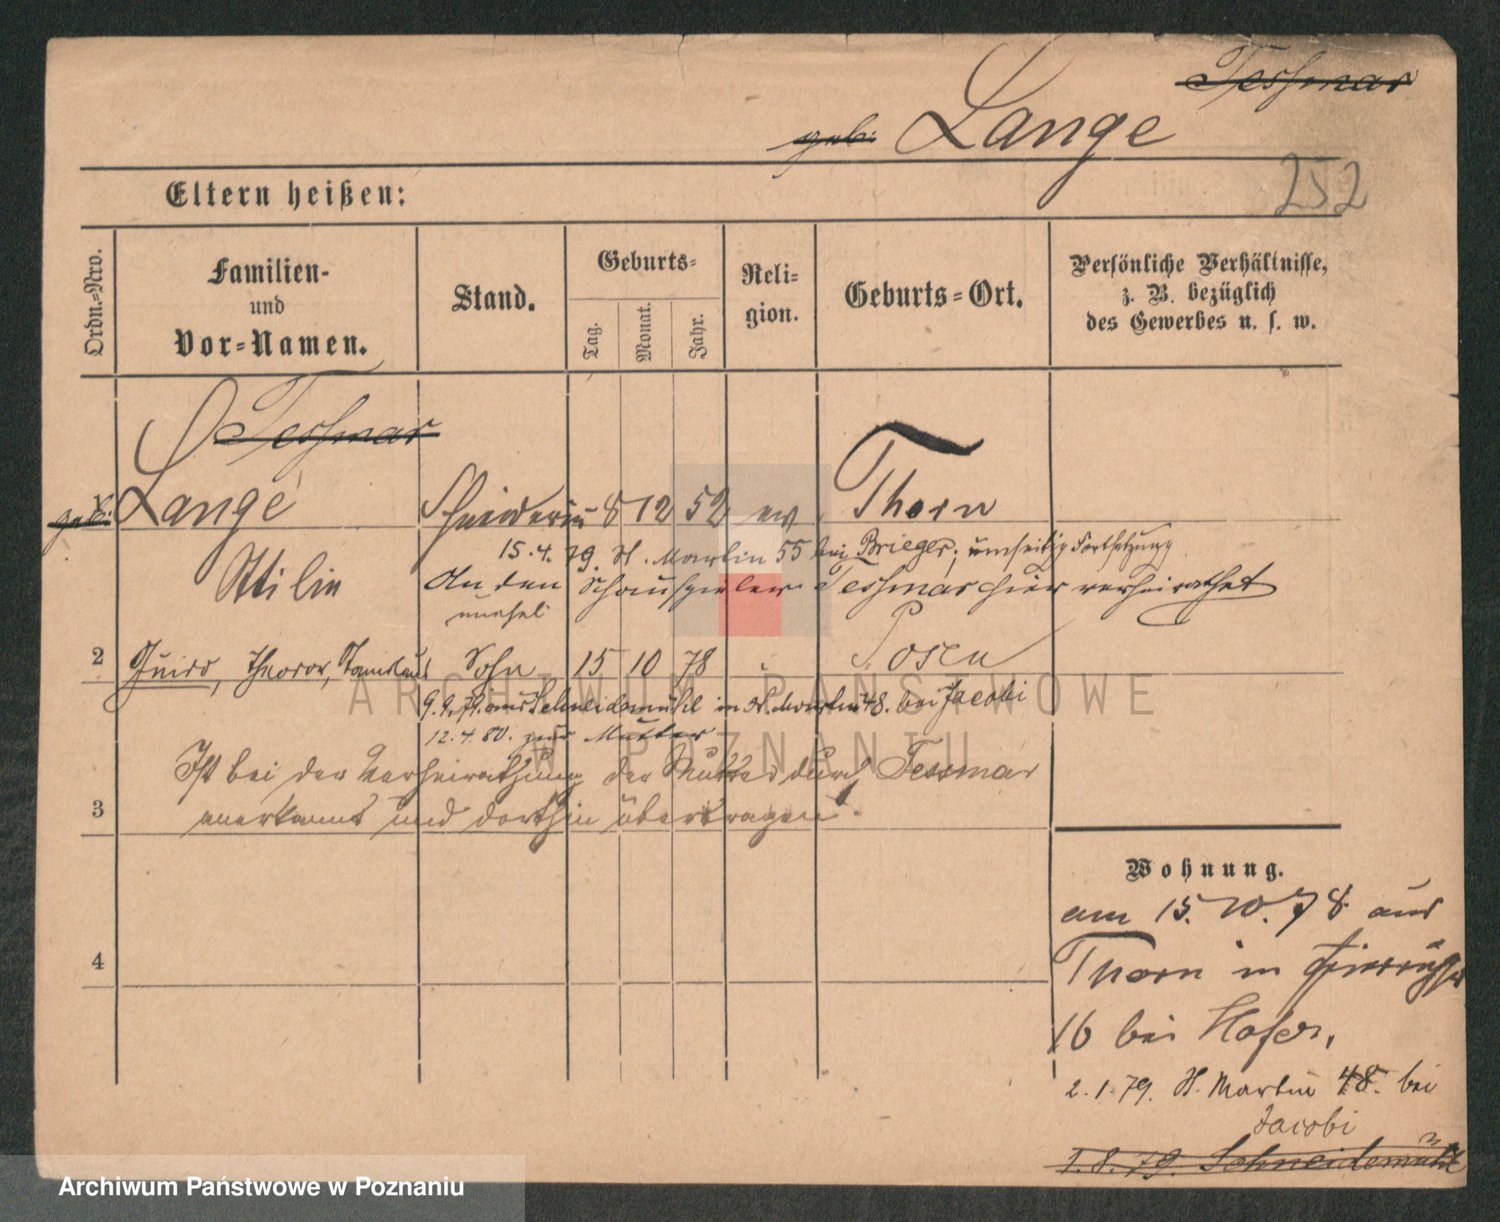 Tessmar
geb. Lange
252
Eltern heißen:
Ordn.-Nro.
Familien-
und
Vor-Namen.
Stand.
Geburts-
Tag.
Monat.
Jahr.
Reli-
gion.
Geburts-Ort.
Persönliche Verhältnisse,
z. B. bezüglich
des Gewerbes u. s. w.
Tessmar
geb. Lange Schneiderin 8 12 52 ev. Thorn
15.4.79. St. Martin 55 bei Brieger; umseitig Fortsetzung
Ottilie An den Schauspieler Tessmar hier verheirathet
unehel.
2 Guido, Theodor, Sohn 15 10 78 Posen
9.9.79. aus Schneidemühl in St. Martin 48. bei Jacobi
12.4.80. zur Mutter
Ist bei der Verheirathung der Mutter durch Tessmar
3 anerkannt und dorthin übertragen.
4
Wohnung.
am 15.10.78 aus
Thorn in
16 bei Hofer,
2.1.79. St. Martin 48. bei
Jacobi
1.8.79. Schneidemühl
ARCHIWUM PAŃSTWOWE
W POZNANIU
Archiwum Państwowe w Poznaniu